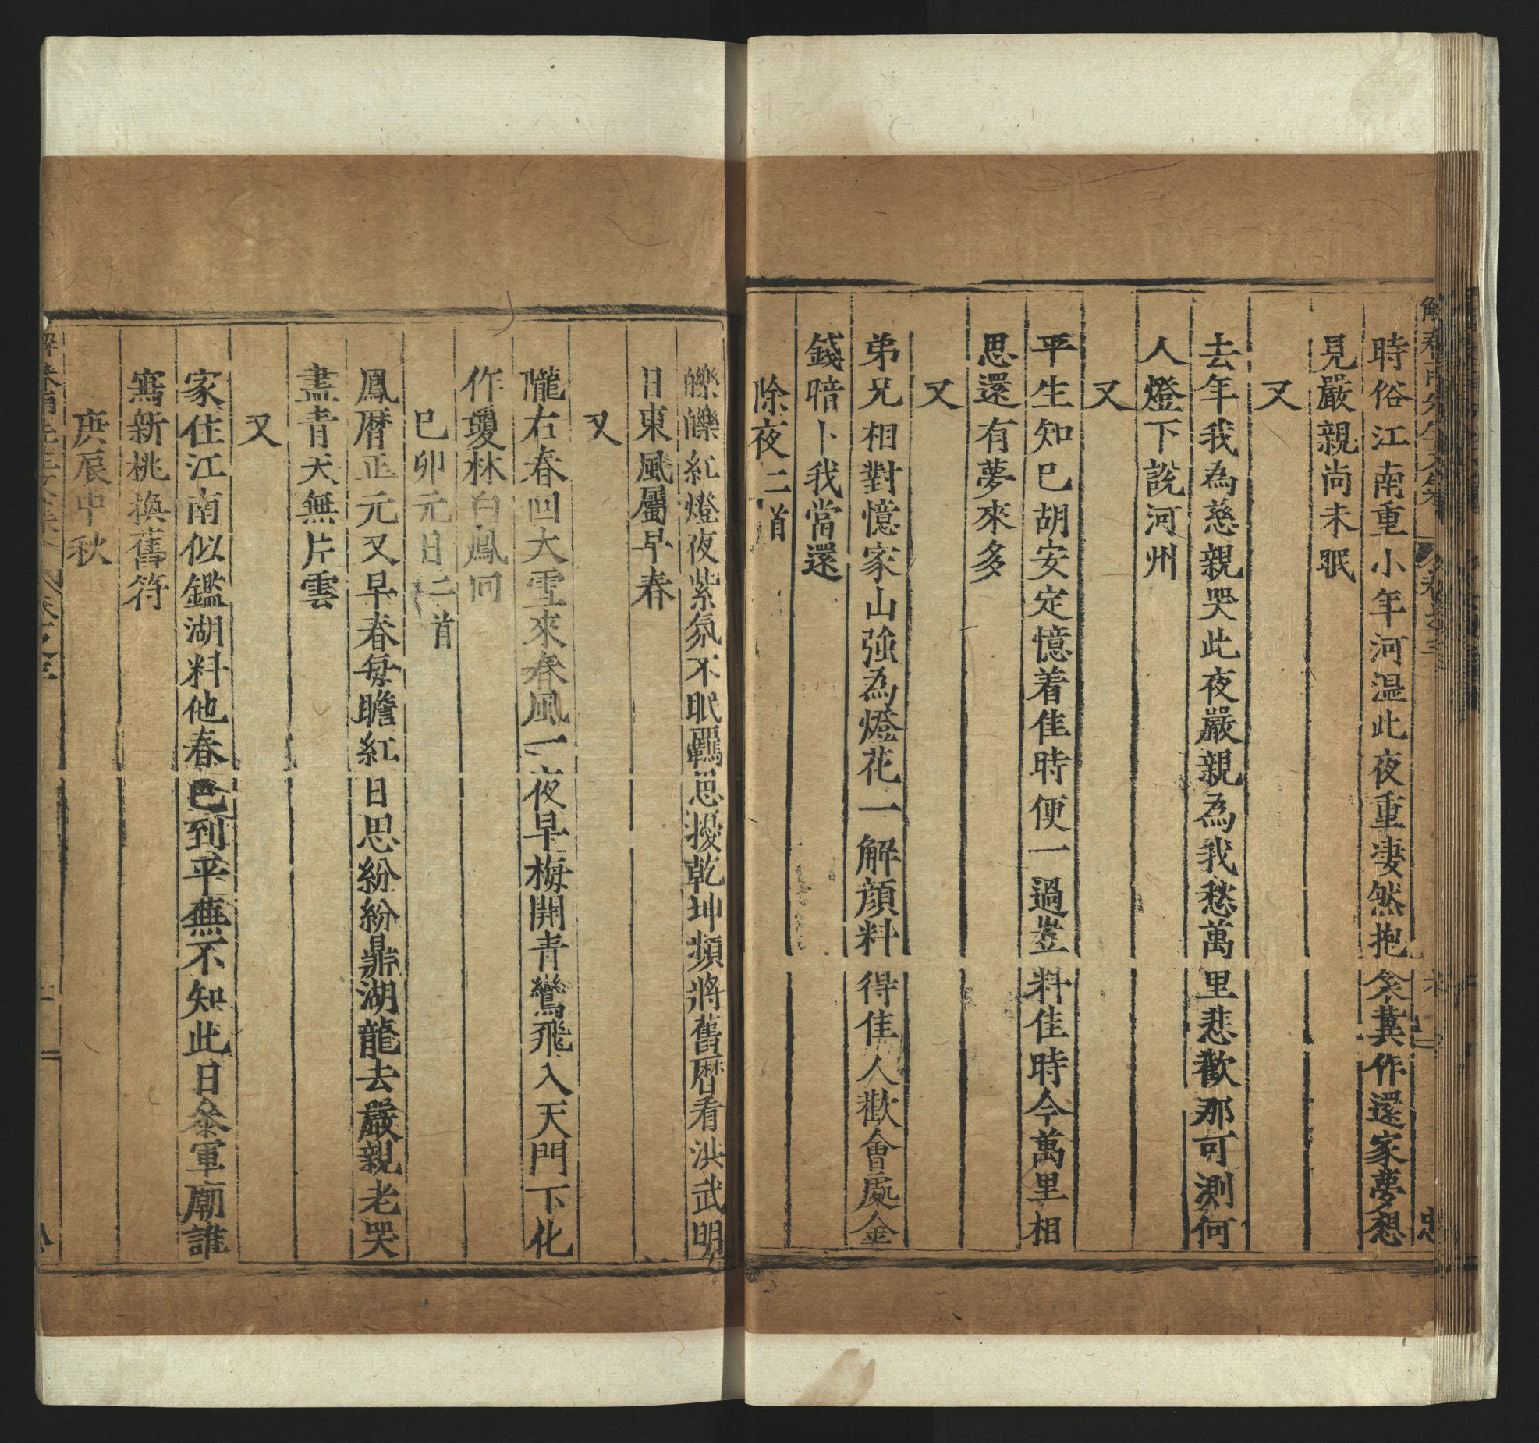 時俗江南重小年河溫此夜重凄然抱衾兾作還家夢想
見嚴親尚未眠
又
去年我為慈親哭此夜嚴親為我愁萬里悲歡那可測何
人燈下說河州
又
平生知已胡安定憶着佳時便一過豈料佳時今萬里相
思還有夢來多
又
弟兄相對憶家山強為燈花一解顔料得佳人歡會處金
錢暗卜我當還
除夜二首
皪皪紅燈夜紫氛不眠羈思擾乾坤頻將舊曆看洪武明
日東風屬早春
又
隴右春回大雪來春風一夜早梅開青鸞飛入天門下化
作瓊林白鳳回
已卯元日二首
鳳曆正元又早春每瞻紅日思紛紛鼎湖龍去嚴親老哭
盡青天無片雲
又
家住江南似鑑湖料他春色到平蕪不知此日叅軍廟誰
寫新桃換舊符
庚辰中秋